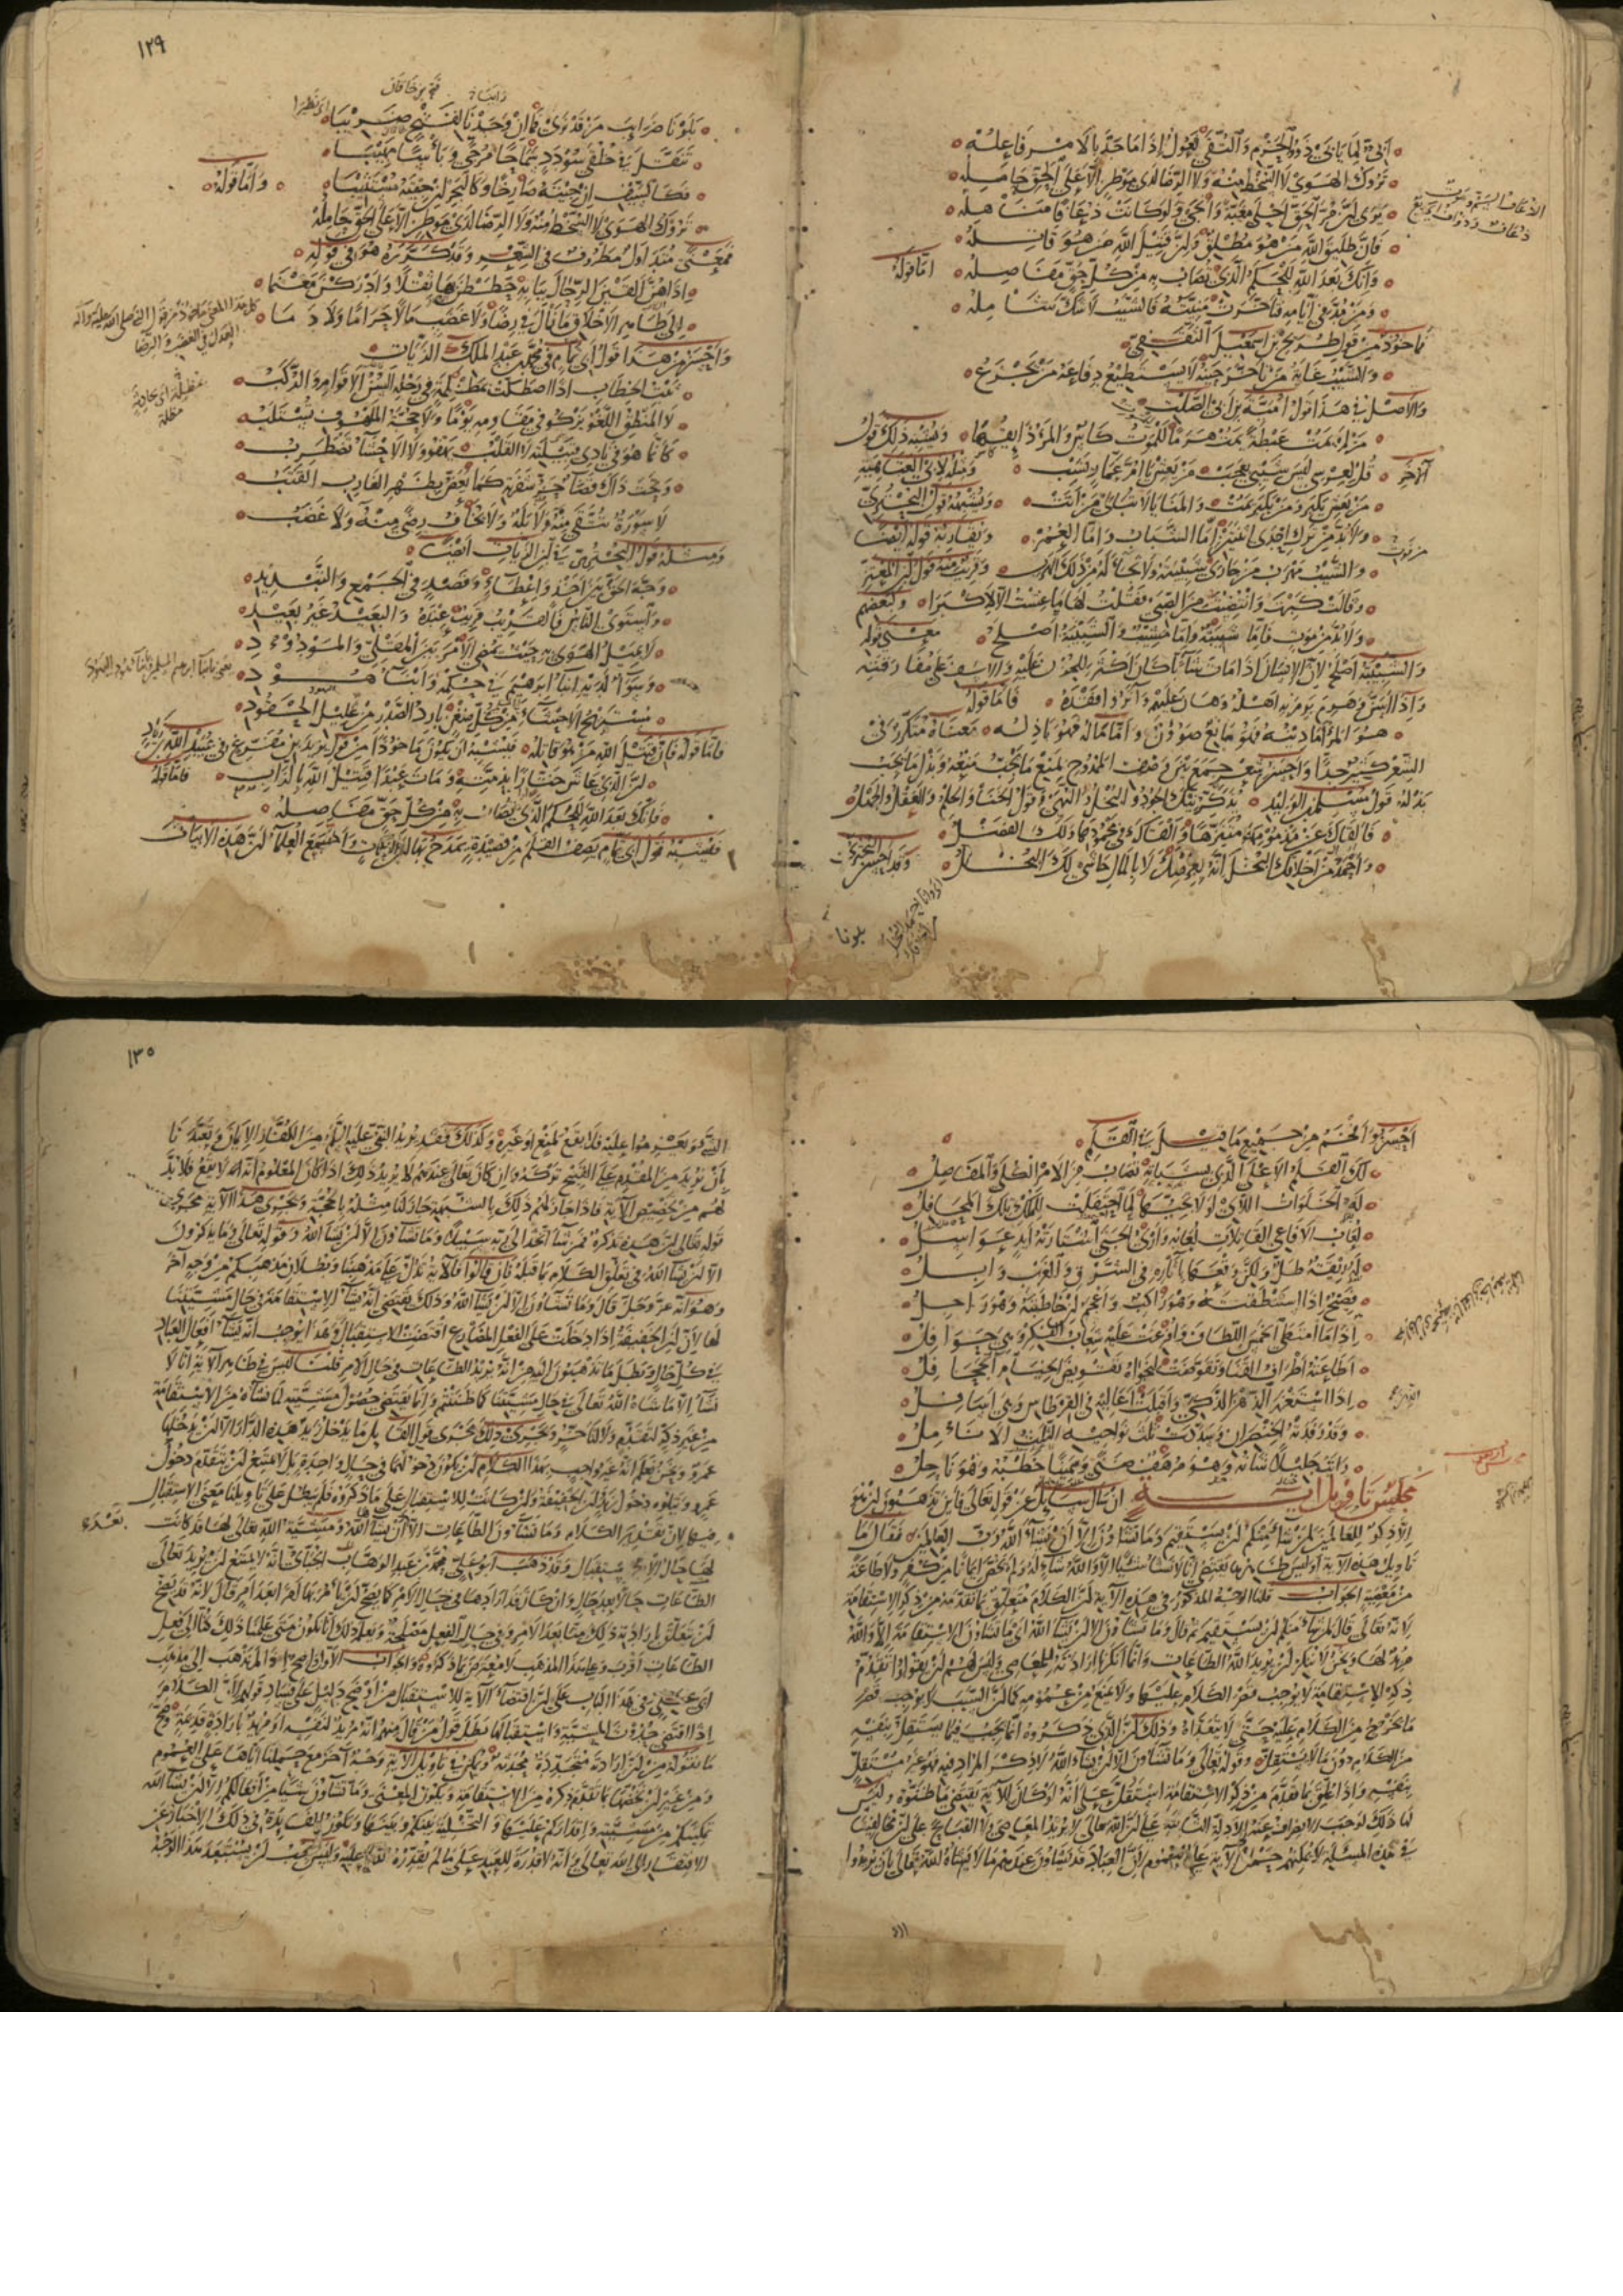 أبيّ لما يأبى ذوو الحزم والتقى فعول إذا ما جدّ بالأمر فاعله
تروك الهوى لا السخط منه ولا الرضا لدى موطن إلا على الحق حامله
يرى أن مرّ الحق أحلى مغبة وأنجى ولو كانت ذعافا مناهله
فإن طليب الله من هو مطلق وإن قتيل الله من هو قاتله
وإنك بعد الله للحكم الذي تصاب به من كل حق مفاصله اما قوله
ومن فقد في أيامه فتأخرت منيته فالشيب لا شك شامله
مأخوذ من قول طريح بن اسمعيل الثقفي
والشيب غاية من تأخر حينه لا يستطيع دفاعه من يجزع
والأصل في هذا قول أمية بن أبي الصلت
من لم يمت عبطة يمت هرما للموت كأس والمرء ذائقها ويشبه ذلك قول
آخر قل لعرسي ليس شيبي بعجيب من يعش يا أم عمار يشب ومثله لأبي العتاهية
من يعش يكبر ومن يكبر يمت والمنايا لا تبالي من أتت ويشبهه قول البحتري
ولا بد من ترك إحدى اثنتين إما الشباب وإما العمر ويقاربه قوله أيضا
والشيب مهرب من جارى منيته ولا نجاء له من ذلك الهرب وقريب منه قول ابن المعتز
وقالت كبرت وانتضيت من الصبى فقلت لها ما عشت إلا لأكبرا ولبعضهم
ولا بد من موت فإما شبيبة وإما مشيب والشبيبة أصلح معنى قوله
والشبيبة أصلح لأن الإنسان إذا مات شابا كان أكثر للحزن عليه والأسف على مفارقته
وإذا أسنّ وهرم برم به أهله وهان عليهم وآثروا فقده فأما قوله
هو المرء أما دينه فهو مانع صؤون وأما ماله فهو باذله معناه متكرر في
الشعر كثير جدا وأحسن شعر جمع بين وصف الممدوح بمنع ما يجب منعه وبذل ما يجب
بذله قول مسلم بن الوليد يذكرنيك الجود والبخل والنهى وقول الخنا والحلم والعلم والجهل
فألقاك عن مذمومها متنزها وألقاك في محمودها ولك الفضل
وأحمد من أخلاقك البخل إنه بعرضك لا بالمال حاشى لك البخل وقد أحسن البحتري
بلونا
١٢٩
بلونا ضرائب من قد نرى فما إن وجدنا لفتح ضريبا
تنقل في خلقي سؤدد سماحا مرجى وبأسا مهيبا
فكالسيف إن جئته صارخا وكالبحر إن جئته مستثيبا وأما قوله
تروك الهوى لا السخط منه ولا الرضا لدى موطن إلا على الحق حامله
فمعنى متداول مطروق في الشعر وقد كرره هو في قوله
إلى ظالم الأخلاق ما نال في رضا ولا غضب مالا حراما ولا دما
وأحسن من هذا قول أبي تمام في محمد بن عبد الملك الزيات
ثبت الخطاب إذا اصطكت بمظلمة في رحله ألسن الأقوام والركب
لا المنطق اللغو يزكو في مقاومه يوما ولا حجة الملهوف تستلب
كأنما هو في نادي قبيلته لا القلب يهفو ولا الأحشاء تضطرب
وتحت ذاك قضاء حز شفرته كما يعض بظهر الغارب القتب
لا سورة تتقى منه ولا بله ولا يخاف رضى منه ولا غضب
ومثله قول البحتري في ابن الزيات أيضا
وجه الحق بين أخذ وإعطاء وقصد في الجمع والتبديد
واستوى الناس فالقريب قريب عنده والبعيد غير بعيد
لا يميل الهوى به حيث يمضي الأمر بين المقلي والمودود
وسواء لديه أبناء ابراهيم في حكمه وأبناء هود
مستريح الأحشاء من كل ضغن بارد الصدر من غليل الحقود
لأن الذي عاش ختارا بذمته ومات عبدا قتيل الله بالزاب فأما قوله
فإنك بعد الله للحكم الذي يصاب به من كل حق مفاصله
فيشبه قول أبي تمام يصف القلم من قصيدة يمدح بها ابن الزيات واجتمع العلماء أن هذه الأبيات
أحسن وأفخم من جميع ما قيل في القلم
لك القلم الأعلى الذي بشباته تصاب من الأمر الكلى والمفاصل
له الخلوات اللاء لولا نجيها لما احتفلت للملك تلك المحافل
لعاب الأفاعي القاتلات لعابه وأري الجنى اشتارته أيد عواسل
له ريقة طل ولكن وقعها بآثاره في الشرق والغرب وابل
فصيح إذا استنطقته وهو راكب وأعجم إن خاطبته وهو راجل
إذا ما امتطى الخمس اللطاف وأفرغت عليه شعاب الفكر وهي حوافل
أطاعته أطراف القنا وتقوضت لنجواه تقويض الخيام الجحافل
إذا استغزر الذهن الذكي وأقبلت أعاليه في القرطاس وهي أسافل
وقد رفدته الخنصران وسددت ثلث نواحيه الثلث الأنامل
رأيت جليلا شأنه وهو مرهف ضنى وسمينا خطبه وهو ناحل
مجلس تأويل آية إن سأل سائل عن قوله تعالى فأين تذهبون إن هو
إلا ذكر للعالمين لمن شاء منكم أن يستقيم وما تشاؤن إلا أن يشاء الله رب العالمين فقال ما
تأويل هذه الآية أوليس ظاهرها يقتضي أنا لا نشاء شيئا إلا والله شاء له ولم يخص إيمانا من كفر ولا طاعة
من معصية الجواب قلنا الوجه المذكور في هذه الآية أن الكلام متعلق بما تقدمه من ذكر الاستقامة
لأنه تعالى قال لمن شاء منكم أن يستقيم ثم قال وما تشاؤن إلا أن يشاء الله أي ما تشاؤن الاستقامة إلا والله
مريد لها ونحن لا ننكر أن يريد الله الطاعات وإنما أنكرنا إرادته للمعاصي وليس لهم أن يقولوا تقدم
ذكر الاستقامة لا يوجب قصر الكلام عليها ولا يمنع من عمومه كما أن السبب لا يوجب قصر
ما يخرج من الكلام عليه حتى لا يتعداه وذلك أن الذي ذكروه إنما يجب فيما يستقل بنفسه
من الكلام دون ما لا يستقل وقوله تعالى وما تشاؤن إلا أن يشاء الله لا ذكر للمراد فيه فهو غير مستقل
بنفسه وإذا علق بما تقدم من ذكر الاستقامة استقل على أنه لو كان للآية يقتضي ما ظنوه وليس
لها ذلك لوجب الانصراف عنه بالأدلة الثابتة على أن الله تعالى لا يريد المعاصي ولا القبائح على أن مخالفينا
في هذه المسئلة لا يمكنهم حمل الآية على العموم لأن العباد قد يشاؤن عندهم ما لا يشاءه الله تعالى بأن يريدوا
١٣٠
الشئ ويعزموا عليه فلا يقع لمنع أو غيره وكذلك فقد يريد النبي عليه السلم من الكفار الإيمان وتعبدنا
بأن نريد من المقدم على القبيح تركه وإن كان تعالى عندهم لا يريد ذلك إذا كان المعلوم أنه لا يقع فلا بد
لهم من تخصيص الآية فإذا جاز لهم ذلك بالشبهة جاز لنا مثله بالحجة وتجري هذه الآية مجرى
قوله تعالى إن هذه تذكرة فمن شاء اتخذ إلى ربه سبيلا وما تشاؤن إلا أن يشاء الله وقوله تعالى وما يذكرون
إلا أن يشاء الله في تعلق الكلام بما قبله فإن قالوا فالآية تدل على مذهبنا وبطلان مذهبكم من وجه آخر
وهو أنه عز وجل قال وما تشاؤن إلا أن يشاء الله وذلك يقتضي أنه يشاء الاستقامة في حال مشيئتنا
لها لأن أن الخفيفة إذا دخلت على الفعل المضارع اقتضت الاستقبال وهذا يوجب أنه يشاء أفعال العباد
في كل حال ويبطل ما تذهبون إليه من أنه يريد الطاعات في حال الأمر قلنا ليس في ظاهر الآية أنا لا
نشاء إلا ما شاءه الله تعالى في حال مشيئتنا كما ظننتم وإنما يقتضي حصول مشيئته لما نشاءه من الاستقامة
من غير ذكر لتقدم ولا تأخر ويجري ذلك مجرى قول القائل ما يدخل زيد هذه الدار إلا أن يدخلها
عمرو ونحن نعلم أنه غير واجب بهذا الكلام أن يكون دخولهما في حال واحدة بل لا يمتنع أن يتقدم دخول
عمرو ويتلوه دخول زيد وأن الخفيفة وإن كانت للاستقبال على ما ذكروه فلم يبطل على تأويلنا معنى الاستقبال
فيها لأن تقدير الكلام وما تشاؤن الطاعات إلا أن يشاء الله ومشيئة الله تعالى لها قد كانت
لها حال الاستقبال وقد ذهب أبو علي محمد بن عبد الوهاب الجبائي إنه لا يمتنع أن يريد تعالى
الطاعات حالا بعد حال وإن كان قد أرادها في حال الأمر كما يصح أن يأمر بها أمرا بعد أمر قال لأنه قد يصح
أن يتعلق بإرادته ذلك منا بعد الأمر وفي حال الفعل مصلحة ويعلم تعالى أنا نكون متى علمنا ذلك كنا إلى فعل
الطاعات أقرب وعلى هذا المذهب لا يعترض بما ذكروه والجواب الأول واضح إذا لم نذهب إلى مذهب
أبي علي في هذا الباب على أن اقتضاء الآية للاستقبال من أوضح دليل على فساد قولهم لأن الكلام
إذا اقتضى حدوث المشيئة واستقبالها بطل قول من قال منهم أنه مريد لنفسه أو مريد بإرادة قديمة وصح
ما نقوله من أن إرادته متجددة محدثة ويمكن في تأويل الآية وجه آخر مع حملنا إياها على العموم
ومن غير أن نخصها بما تقدم ذكره من الاستقامة ويكون المعنى وما تشاؤن شيئا من أفعالكم إلا أن يشاء الله
تمكينكم من مشيئته وإقداركم عليها والتخلية بينكم وبينها وتكون الفائدة في ذلك الإخبار عن
الافتقار إلى الله تعالى وأنه لا قدرة للعبد على ما لم يقدره الله تعالى عليه وليس يجب أن يستبعد هذا الوجه